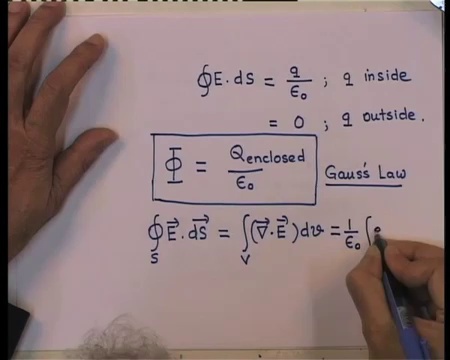 ∮E.ds = q/ε₀ ; q inside
= 0 ; q outside.
Φ = Qenclosed/ε₀ Gauss's Law
∮_S E⃗.ds⃗ = ∫_V (∇⃗.E⃗)dv = 1/ε₀ ∫